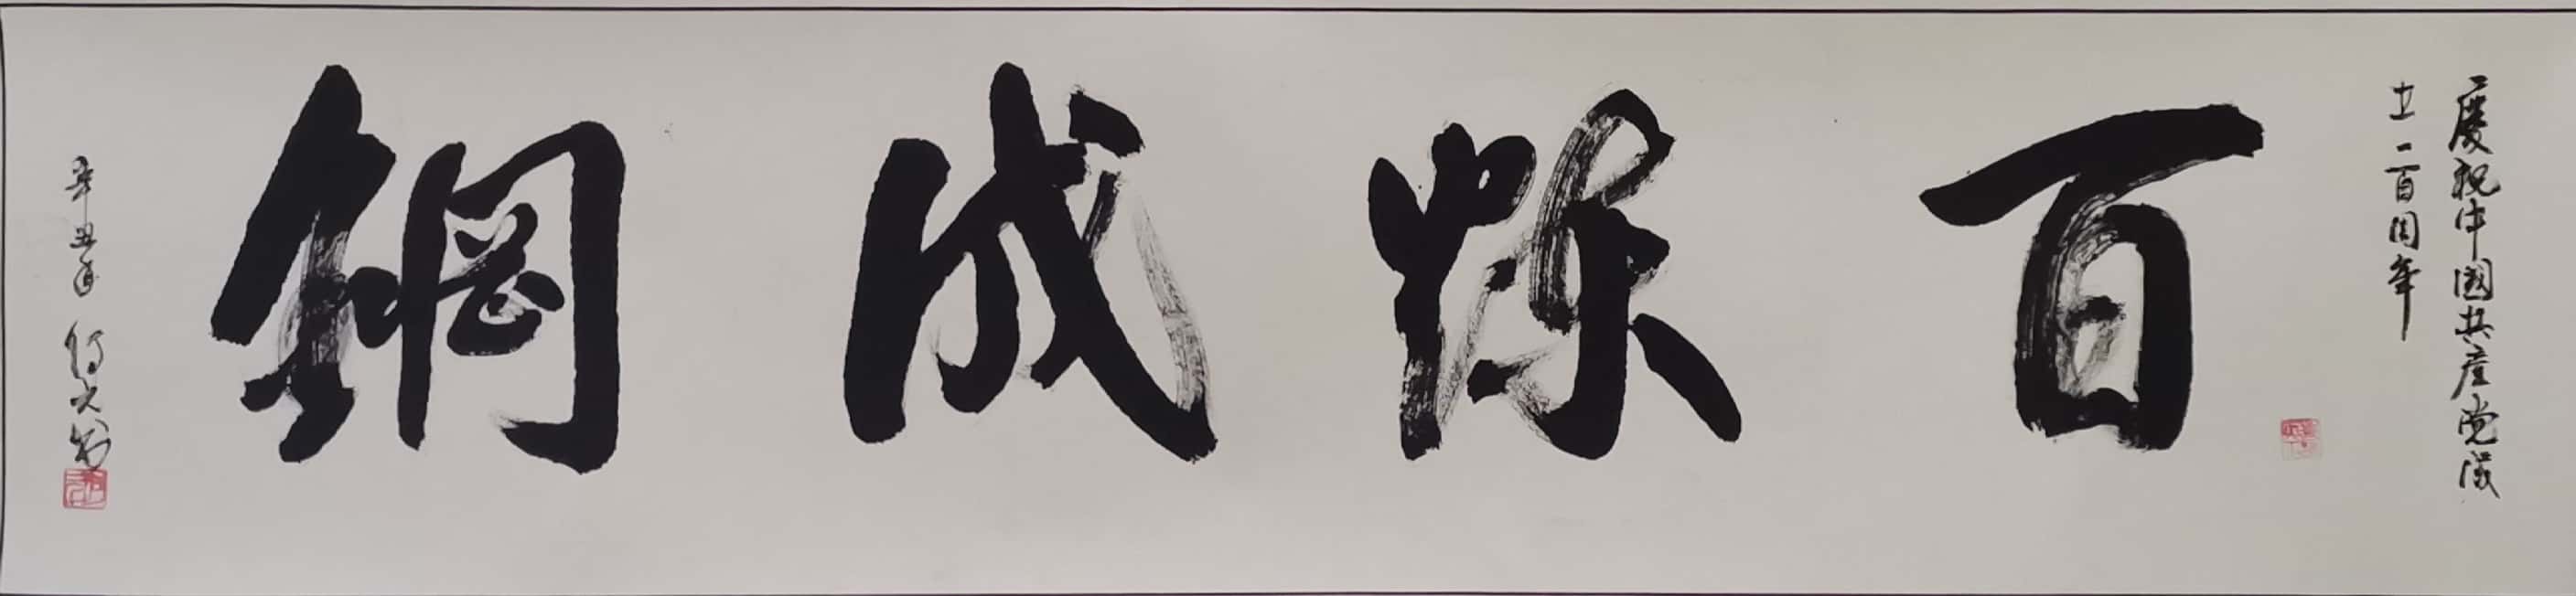 慶祝中國共産党成
立一百周年
百煉成鋼
辛丑年